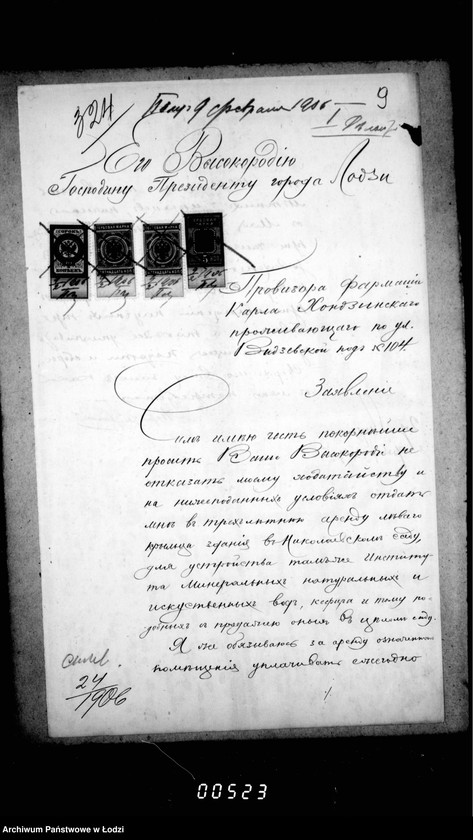 324
9
9 февраля 1906
I
Его Высокородію
Господину Президенту города Лодзи
5 коп
Провизора Фармаціи
Карла Хондзынскаго
проживающаго по ул.
Видзевской подъ № 104.
Заявленіе
Симъ имѣю честь покорнѣйше
просить Ваше Высокородіе не
отказать моему ходатайству и
на нижеподанныхъ условіяхъ отдать
мнѣ въ трехлѣтнюю аренду лѣваго
крыльца зданія въ Николаевскомъ саду,
для устройства тамъ же Институ-
та Минеральныхъ натуральныхъ и
искуственныхъ водъ, кефира и тому по-
добныхъ и продажию оныхъ въ цѣломъ саду.
Я же обязываюсь за аренду означеннаго
помѣщенія уплачивать ежегодно
24
1906
00523
Archiwum Państwowe w Łodzi